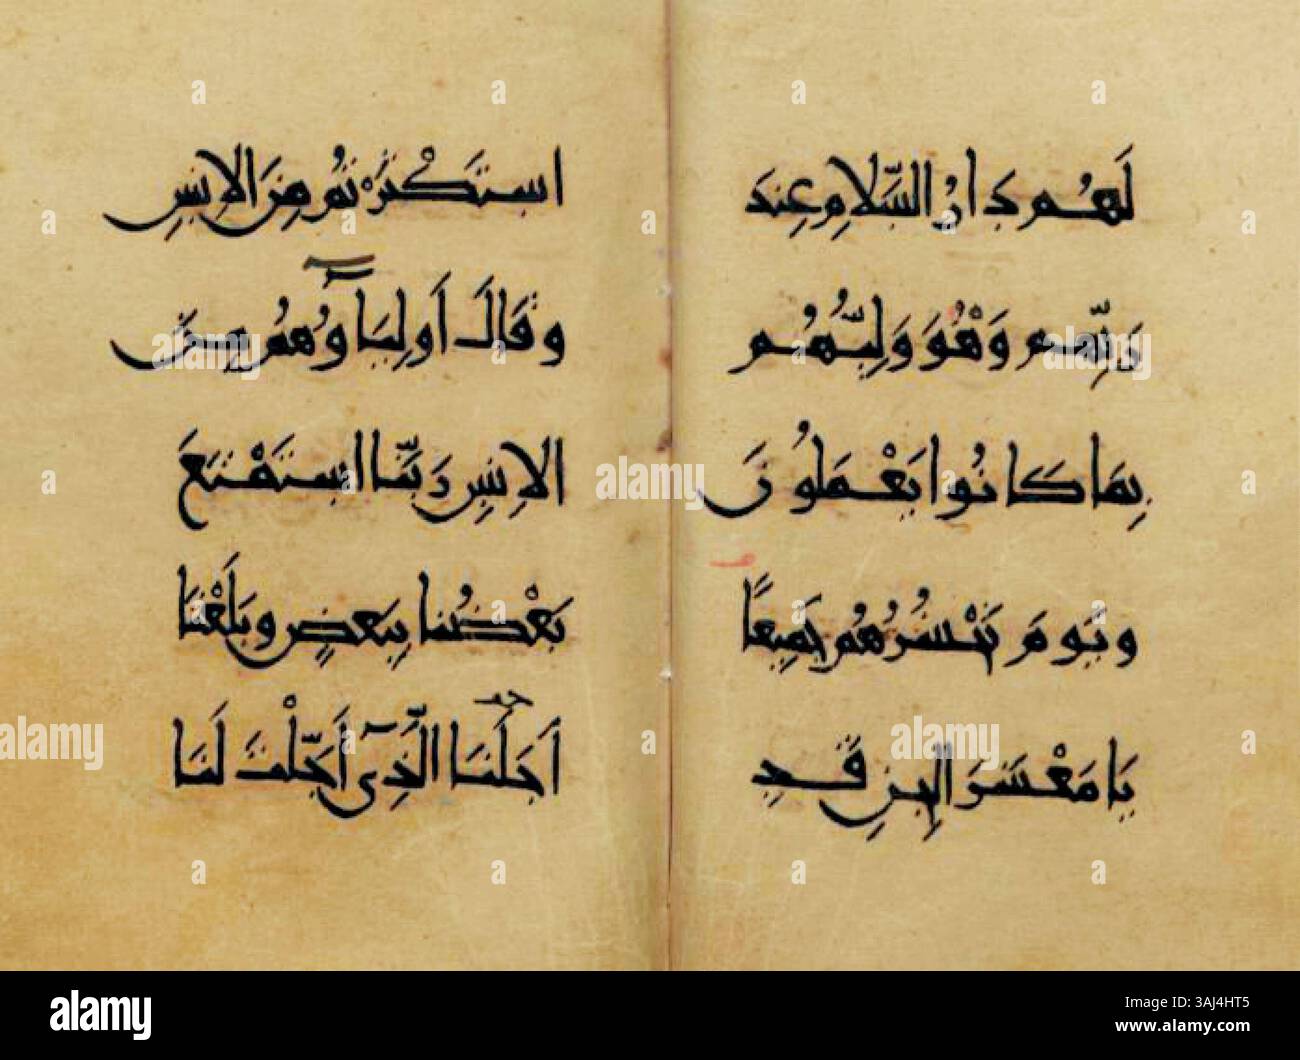 لَهُم دَارُ السَّلَامِ عِندَ
رَبِّهِم وَهْوَ وَلِيُّهُم
بِمَا كَانُوا يَعْمَلُونَ
وَيَومَ نَحْشُرُهُم جَمِيعًا
يَا مَعْشَرَ الجِنِّ قَدِ
استَكْثَرْتُم مِنَ الاِنسِ
وَقَالَ أَولِيَاؤُهُم مِنَ
الاِنسِ رَبَّنَا استَمْتَعَ
بَعْضُنَا بِبَعضٍ وَبَلَغْنَا
أَجَلَنَا الَّذِي أَجَّلْتَ لَنَا
alamy
alamy
Image ID: 3AJ4HT5
www.alamy.com